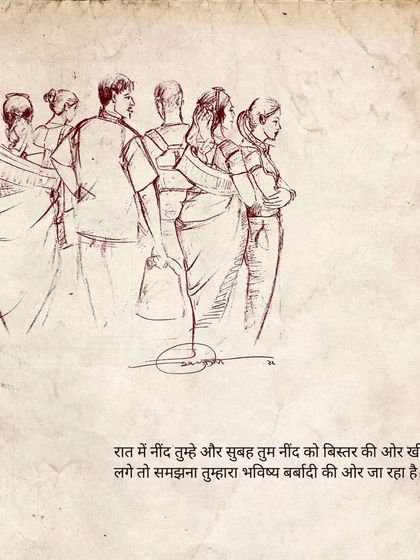 रात में नींद तुम्हे और सुबह तुम नींद को बिस्तर की ओर
लगे तो समझना तुम्हारा भविष्य बर्बादी की ओर जा रहा है